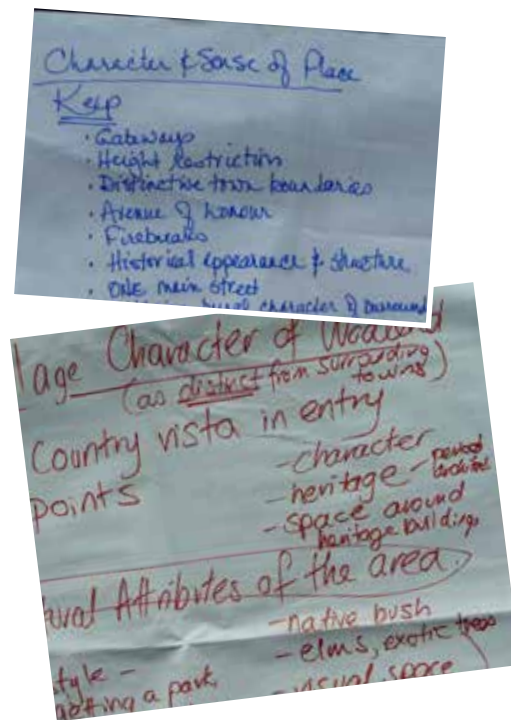 Character & Sense of Place
Keep
· Gateways
· Height Restriction
· Distinctive town boundaries
· Avenue of honour
· Firebreaks
· Historical appearance & structure
· ONE main street
rural character of surround
lage Character of Woodend
(as distinct from surrounding
towns)
Country vista in entry
points
- character
- heritage - period
- space around
heritage buildings
ural Attributes of the area.
- native bush
- elms, exotic trees
- visual space
style -
a park,